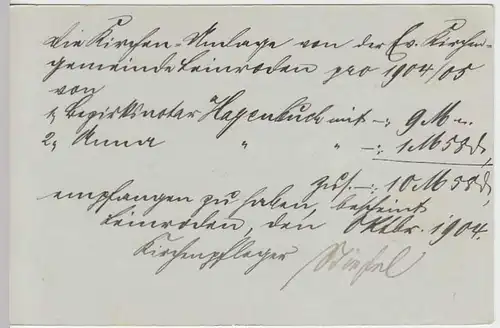 Die Kirchen-Umlage von der Ev. Kirchen-
gemeinde Leinroden pro 1904/05
von
1, Bezirksnotar Hagenbuch mit -: 9 M -.
2, Anna " " -: 1 M 58 d,
zus. -: 10 M 58 d,
empfangen zu haben, bescheint
Leinroden, den Oktbr. 1904.
Kirchenpfleger Stiefel